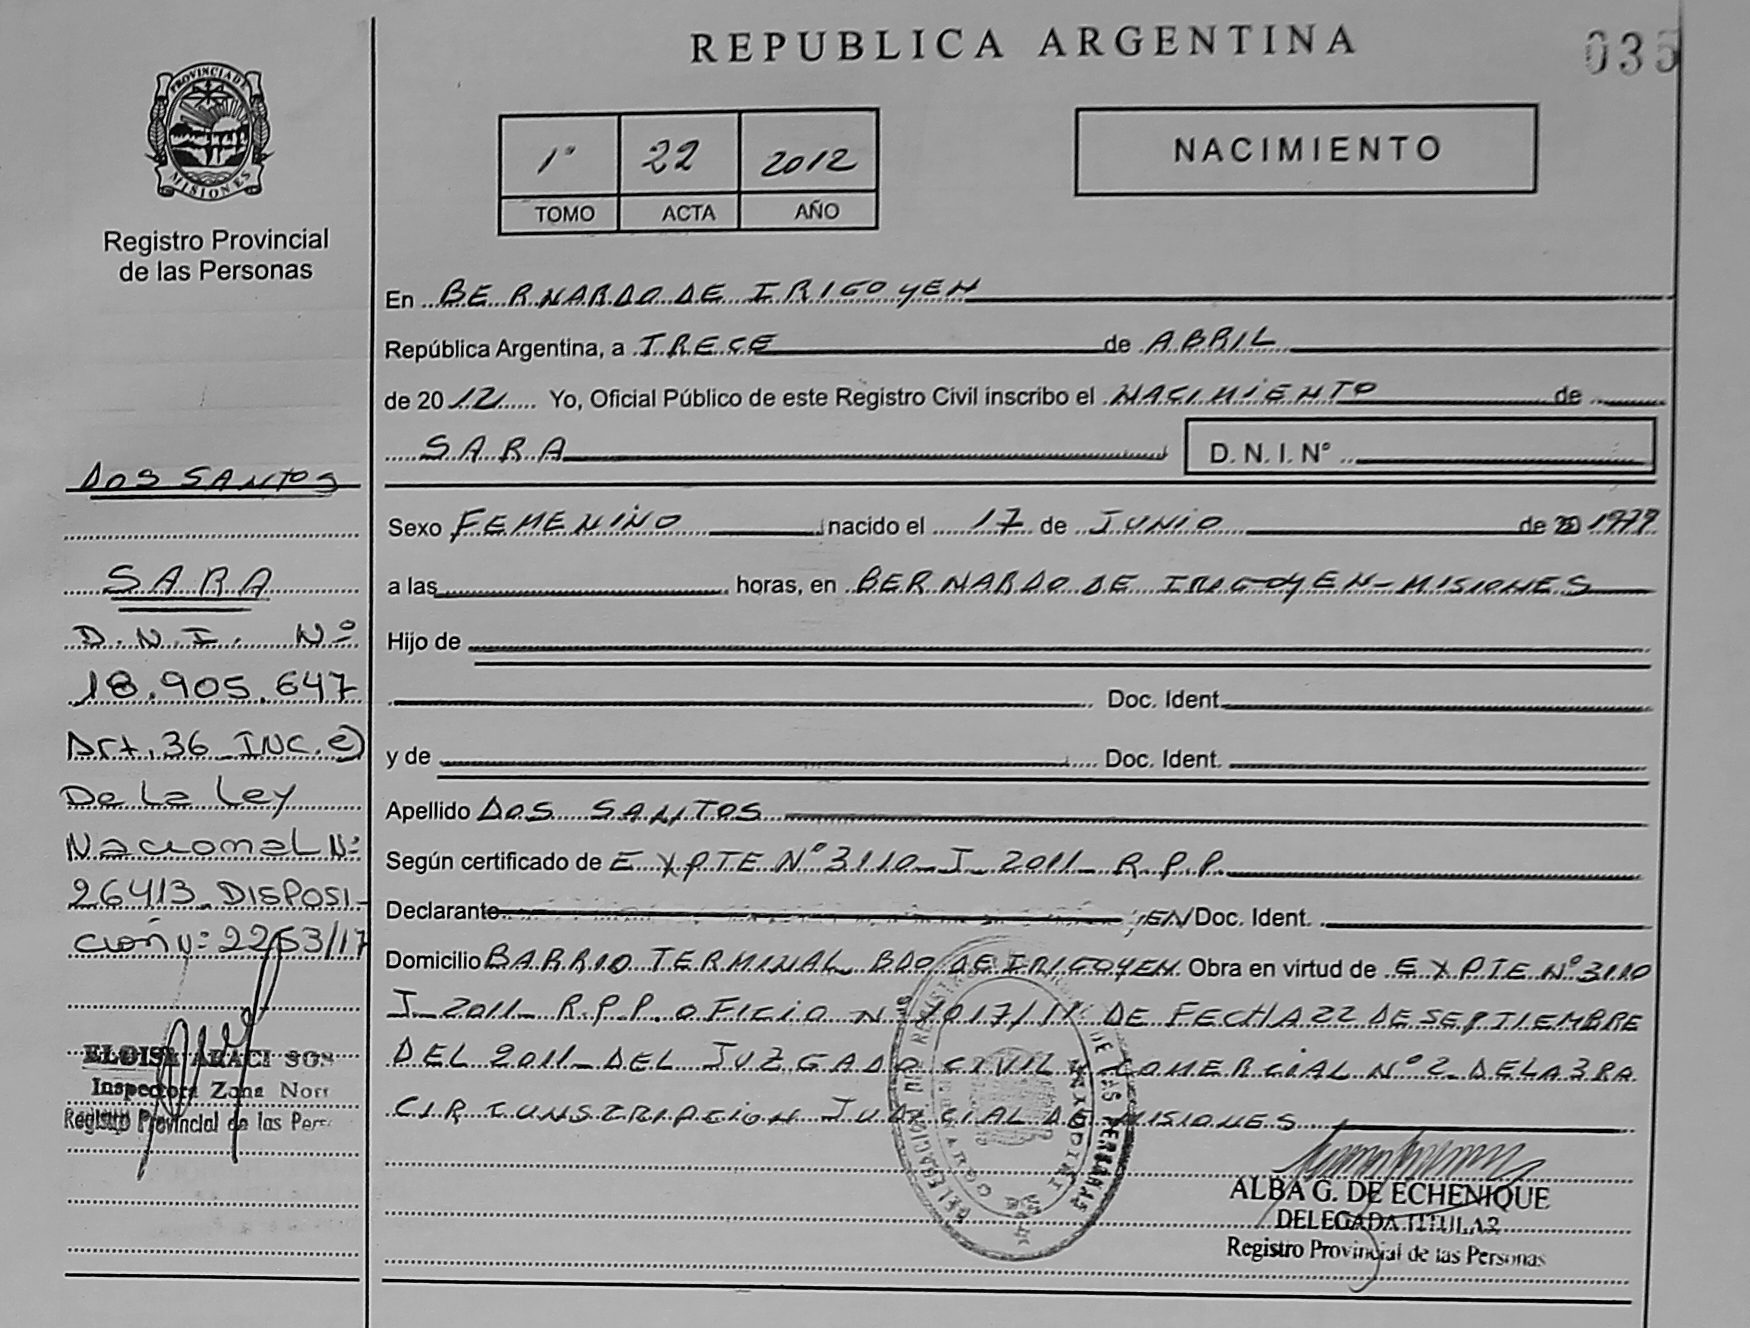 REPUBLICA ARGENTINA
035
PROVINCIA DE
MISIONES
Registro Provincial
de las Personas
1° 22 2012
TOMO ACTA AÑO
NACIMIENTO
En BERNARDO DE IRIGOYEN
República Argentina, a TRECE de ABRIL
de 2012 Yo, Oficial Público de este Registro Civil inscribo el NACIMIENTO de
SARA D. N. I. N°
Sexo FEMENINO nacido el 17 de JUNIO de 20
a las horas, en BERNARDO DE IRIGOYEN-MISIONES
Hijo de
Doc. Ident.
y de Doc. Ident.
Apellido DOS SANTOS
Según certificado de EXPTE N° 3110-I-2011- R.P.P.
Declarante Doc. Ident.
Domicilio BARRIO TERMINAL BDO DE IRIGOYEN. Obra en virtud de EXPTE N° 3110
I-2011- R.P.P. OFICIO DE FECHA 22 DE SEPTIEMBRE
DEL 2011- DEL JUZGADO CIVIL COMERCIAL N° 2 DE LA 3RA
MISIONES
ALBA G. DE ECHENIQUE
DELEGADA TITULAR
Registro Provincial de las Personas
DOS SANTOS
SARA
D.N.I. Nº
18.905.647
Art. 36 INC. e)
De La Ley
Nacional Nº
26413 DISPOSI-
ción Nº 2253/17
ELOISA ARACI
Inspectora Zona Nor
Registro Provincial de las Pers